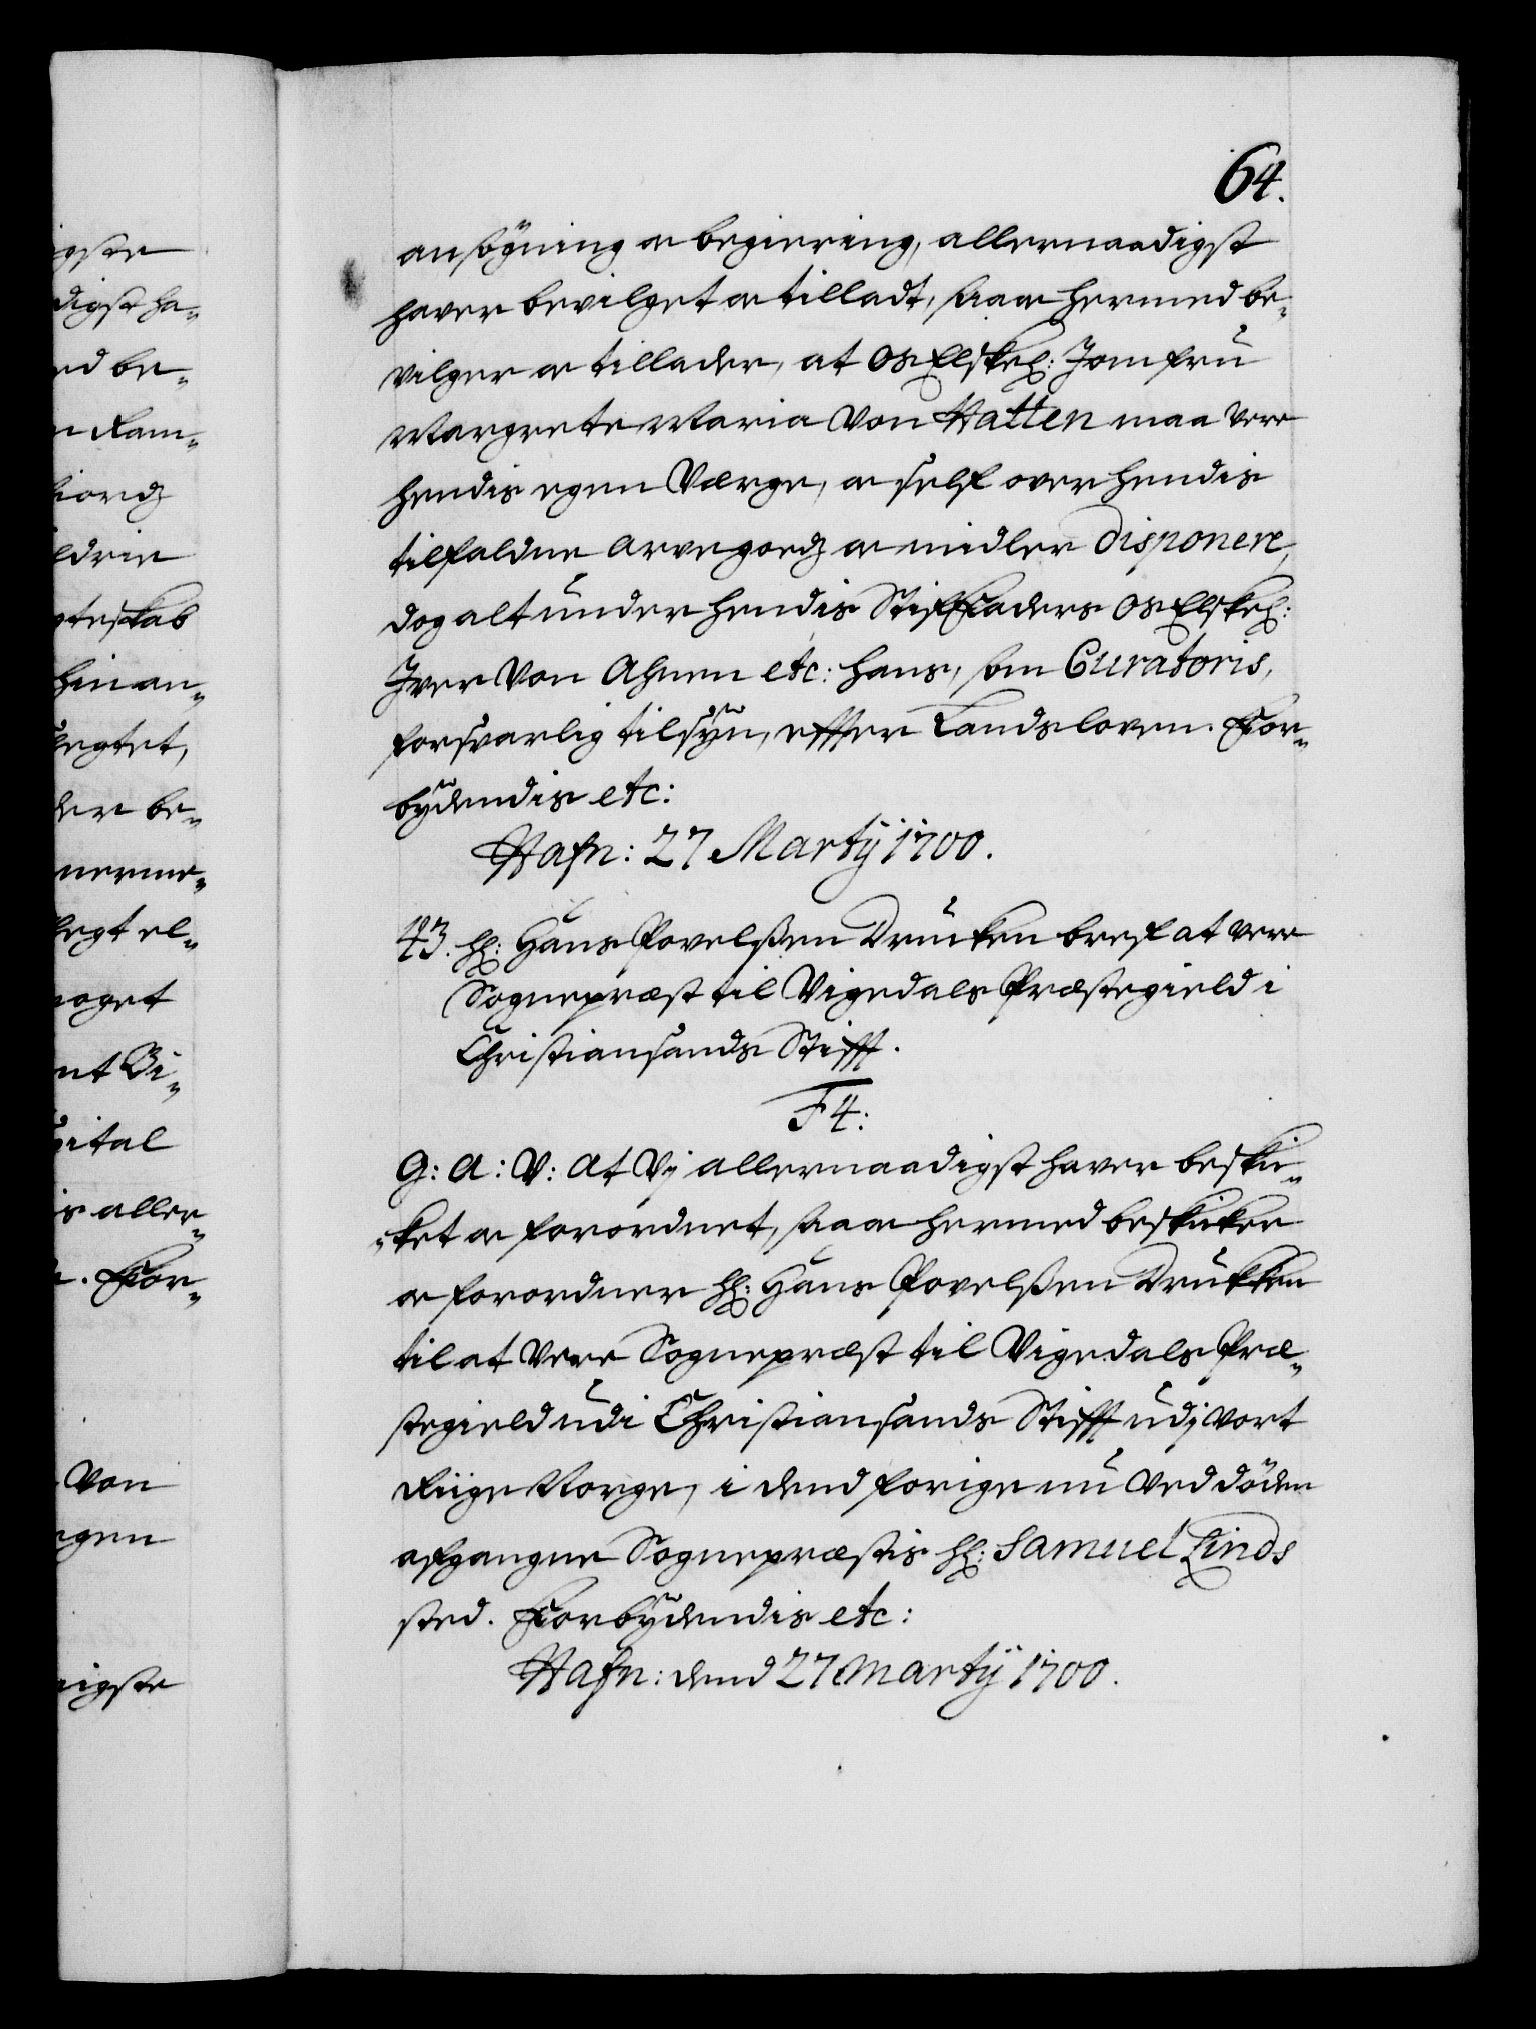 64.
ansögning oc begiering, allernaadigst
hafver bevilget oc tilladt, saa oc hermed be¬
vilger oc tillader, at Os Elskel: Jomfru
Margrete Maria Von Hatten maa vere
hendis egen Verge, oc self over hendis
tilfaldne Arvegods oc midler disponere,
dog alt under hendis Stiffaders Os Elskel:
Iver Von Ahnen etc: hans, som Curatoris,
forsvarlig tilsyn, effter Landsloven. For¬
bydendis etc:
Hafn: 27 Martij 1700.
43. Hr: Hans Povelßen Drucken bref at vere
Sognepræst til Vigedals Præstegield i
Christiansands Stifft.
F 4:
G: A: V: At Vj allernaadigst hafver beski¬
¬ket oc forordnet, saa oc hermed beskicker
oc forordner Hr: Hans Povelßen Drukken
til at Vere Sognepræst til Vigedals Præ¬
stegield udi Christiansands Stifft udj vort
Riige Norge, i dend forige nu ved döden
afgangne Sognepræstis Hr: Samuel Linds
sted. Forbydendis etc:
Hafn: dend 27 Martij 1700.
digst ha¬
ed be¬
gteskab
hinan¬
legtet,
der be¬
nerme¬
legt el¬
noget
nt Bi¬
pital
is aller¬
. For¬
Von
egen
nigste